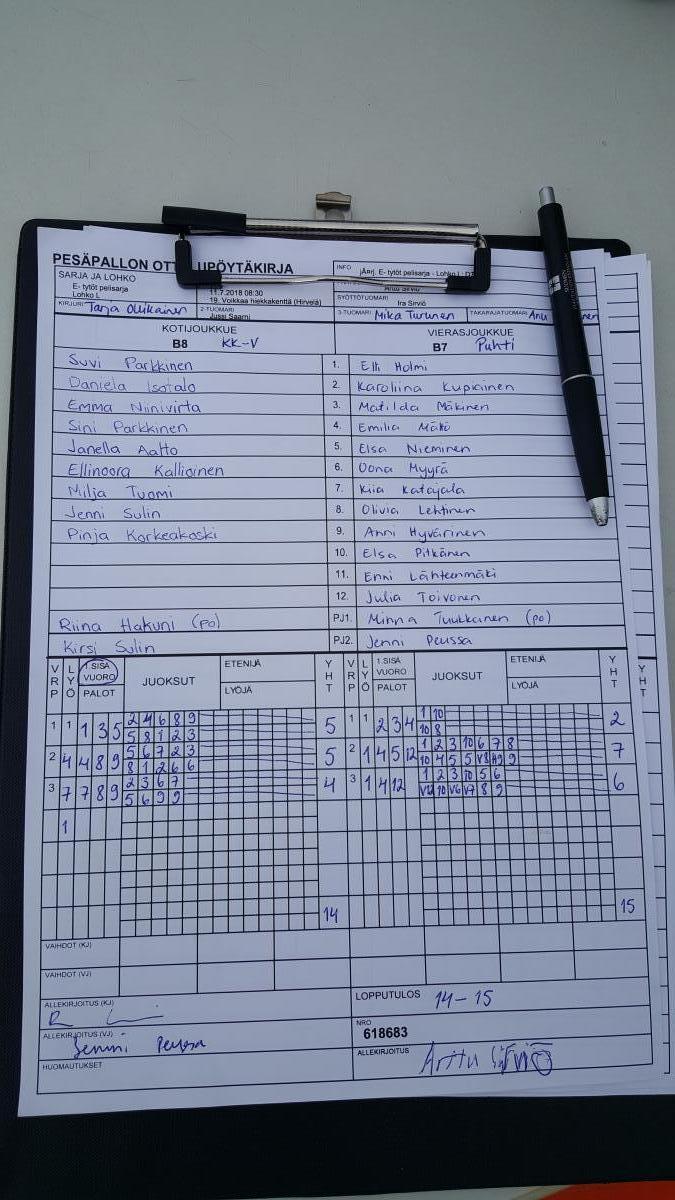 PESÄPALLON OTT UPÖYTÄKIRJA
SARJA JA LOHKO
E- tytöt pelisarja
Lohko L
INFO
jÄnj. E- tytöt pelisarja - Lohko L
11.7.2018 08:30
19. Voikkaa hiekkakenttä (Hirvelä)
SYÖTTÖTUOMARI
Ira Sirviö
KIRJURI Tarja Ollikainen
2-TUOMARI
Jussi Saarni
3-TUOMARI Mika Turunen
TAKARAJATUOMARI Anu nen
KOTIJOUKKUE
B8 KK-V
VIERASJOUKKUE
B7 Puhti
Suvi Parkkinen 1. Elli Holmi
Daniela Isotalo 2. Karoliina Kupiainen
Emma Niinivirta 3. Matilda Mäkinen
Sini Parkkinen 4. Emilia Mäki
Janella Aalto 5. Elsa Nieminen
Ellinoora Kallioinen 6. Oona Myyrä
Milja Tuomi 7. Kiia Katajala
Jenni Sulin 8. Olivia Lehtinen
Pinja Korkeakoski 9. Anni Hyvärinen
10. Elsa Pitkänen
11. Enni Lähteenmäki
12. Julia Toivonen
Riina Hakuni (po) PJ1. Minna Tuukkainen (po)
Kirsi Sulin PJ2. Jenni Peussa
VRP LYÖ 1.SISÄ VUORO PALOT JUOKSUT ETENIJÄ LYÖJÄ YHT VRP LYÖ 1.SISÄ VUORO PALOT JUOKSUT ETENIJÄ LYÖJÄ YHT YHT
1 1 1 3 5 2 4 6 8 9 5 1 1 2 3 4 1 10 2
5 8 1 2 3 10 8
2 4 4 8 9 5 6 7 2 3 5 2 1 4 5 12 1 2 3 10 6 7 8 7
8 1 2 6 6 10 4 5 5 V8 H9 9
3 7 7 8 9 2 3 6 7 4 3 1 4 12 1 2 3 10 5 6 6
5 6 9 9 V12 10 V6 V7 8 9
1
14 15
VAIHDOT (KJ)
VAIHDOT (VJ)
ALLEKIRJOITUS (KJ)
LOPPUTULOS 14-15
ALLEKIRJOITUS (VJ)
Jenni Peussa
NRO
618683
HUOMAUTUKSET
ALLEKIRJOITUS Arttu Sirviö